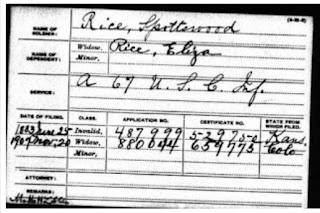 (3-38-6)
NAME OF SOLDIER: Rice, Spottswood
NAME OF DEPENDENT: Widow, Rice, Eliza
Minor,
SERVICE: A 67 U.S.C. Inf.
DATE OF FILING. CLASS. APPLICATION NO. CERTIFICATE NO. STATE FROM WHICH FILED.
1883 June 25 Invalid, 487999 Kans.
1907 Nov. 20 Widow, 880044 659775 Colo
Minor,
ATTORNEY:
REMARKS: